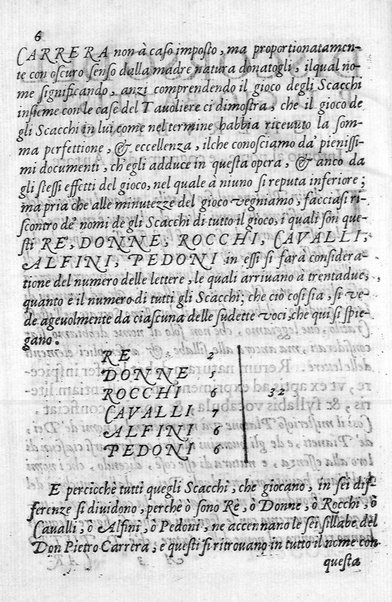 6
CARRERA non à caso imposto, ma proportionatamen-
te con oscuro senso dalla madre natura donatogli, ilqual no-
me significando, anzi comprendendo il gioco degli Scacchi
insieme con le case del Tauoliere ci dimostra, che il gioco de
gli Scacchi in lui come nel termine habbia riceuuto la som-
ma perfettione, & eccellenza, ilche conosciamo da pienissi-
mi documenti, ch'egli adduce in questa opera, & anco da
gli stessi effetti del gioco, nel quale a niuno si reputa inferiore;
ma pria che alle minutezze del gioco vegniamo, facciasi ri-
scontro de' nomi de gli Scacchi di tutto il gioco, i quali son que-
sti RE, DONNE, ROCCHI, CAVALLI,
ALFINI, PEDONI in essi si farà considera-
tione del numero delle lettere, le quali arriuano à trentadue,
quanto è il numero di tutti gli Scacchi; che ciò così sia, si ve-
de ageuolmente da ciascuna delle sudette voci, che qui si spie-
gano.
RE 2
DONNE 5
ROCCHI 6 32
CAVALLI 7
ALFINI 6
PEDONI 6
E perciochè tutti quegli Scacchi, che giocano, in sei dif-
ferenze si diuidono, perche ò sono Re, ò Donne, ò Rocchi, ò
Caualli, ò Alfini, ò Pedoni, ne accennano le sei sillabe del
Don Pietro Carrera, e questi si ritrouano in tutto il nome con
questa